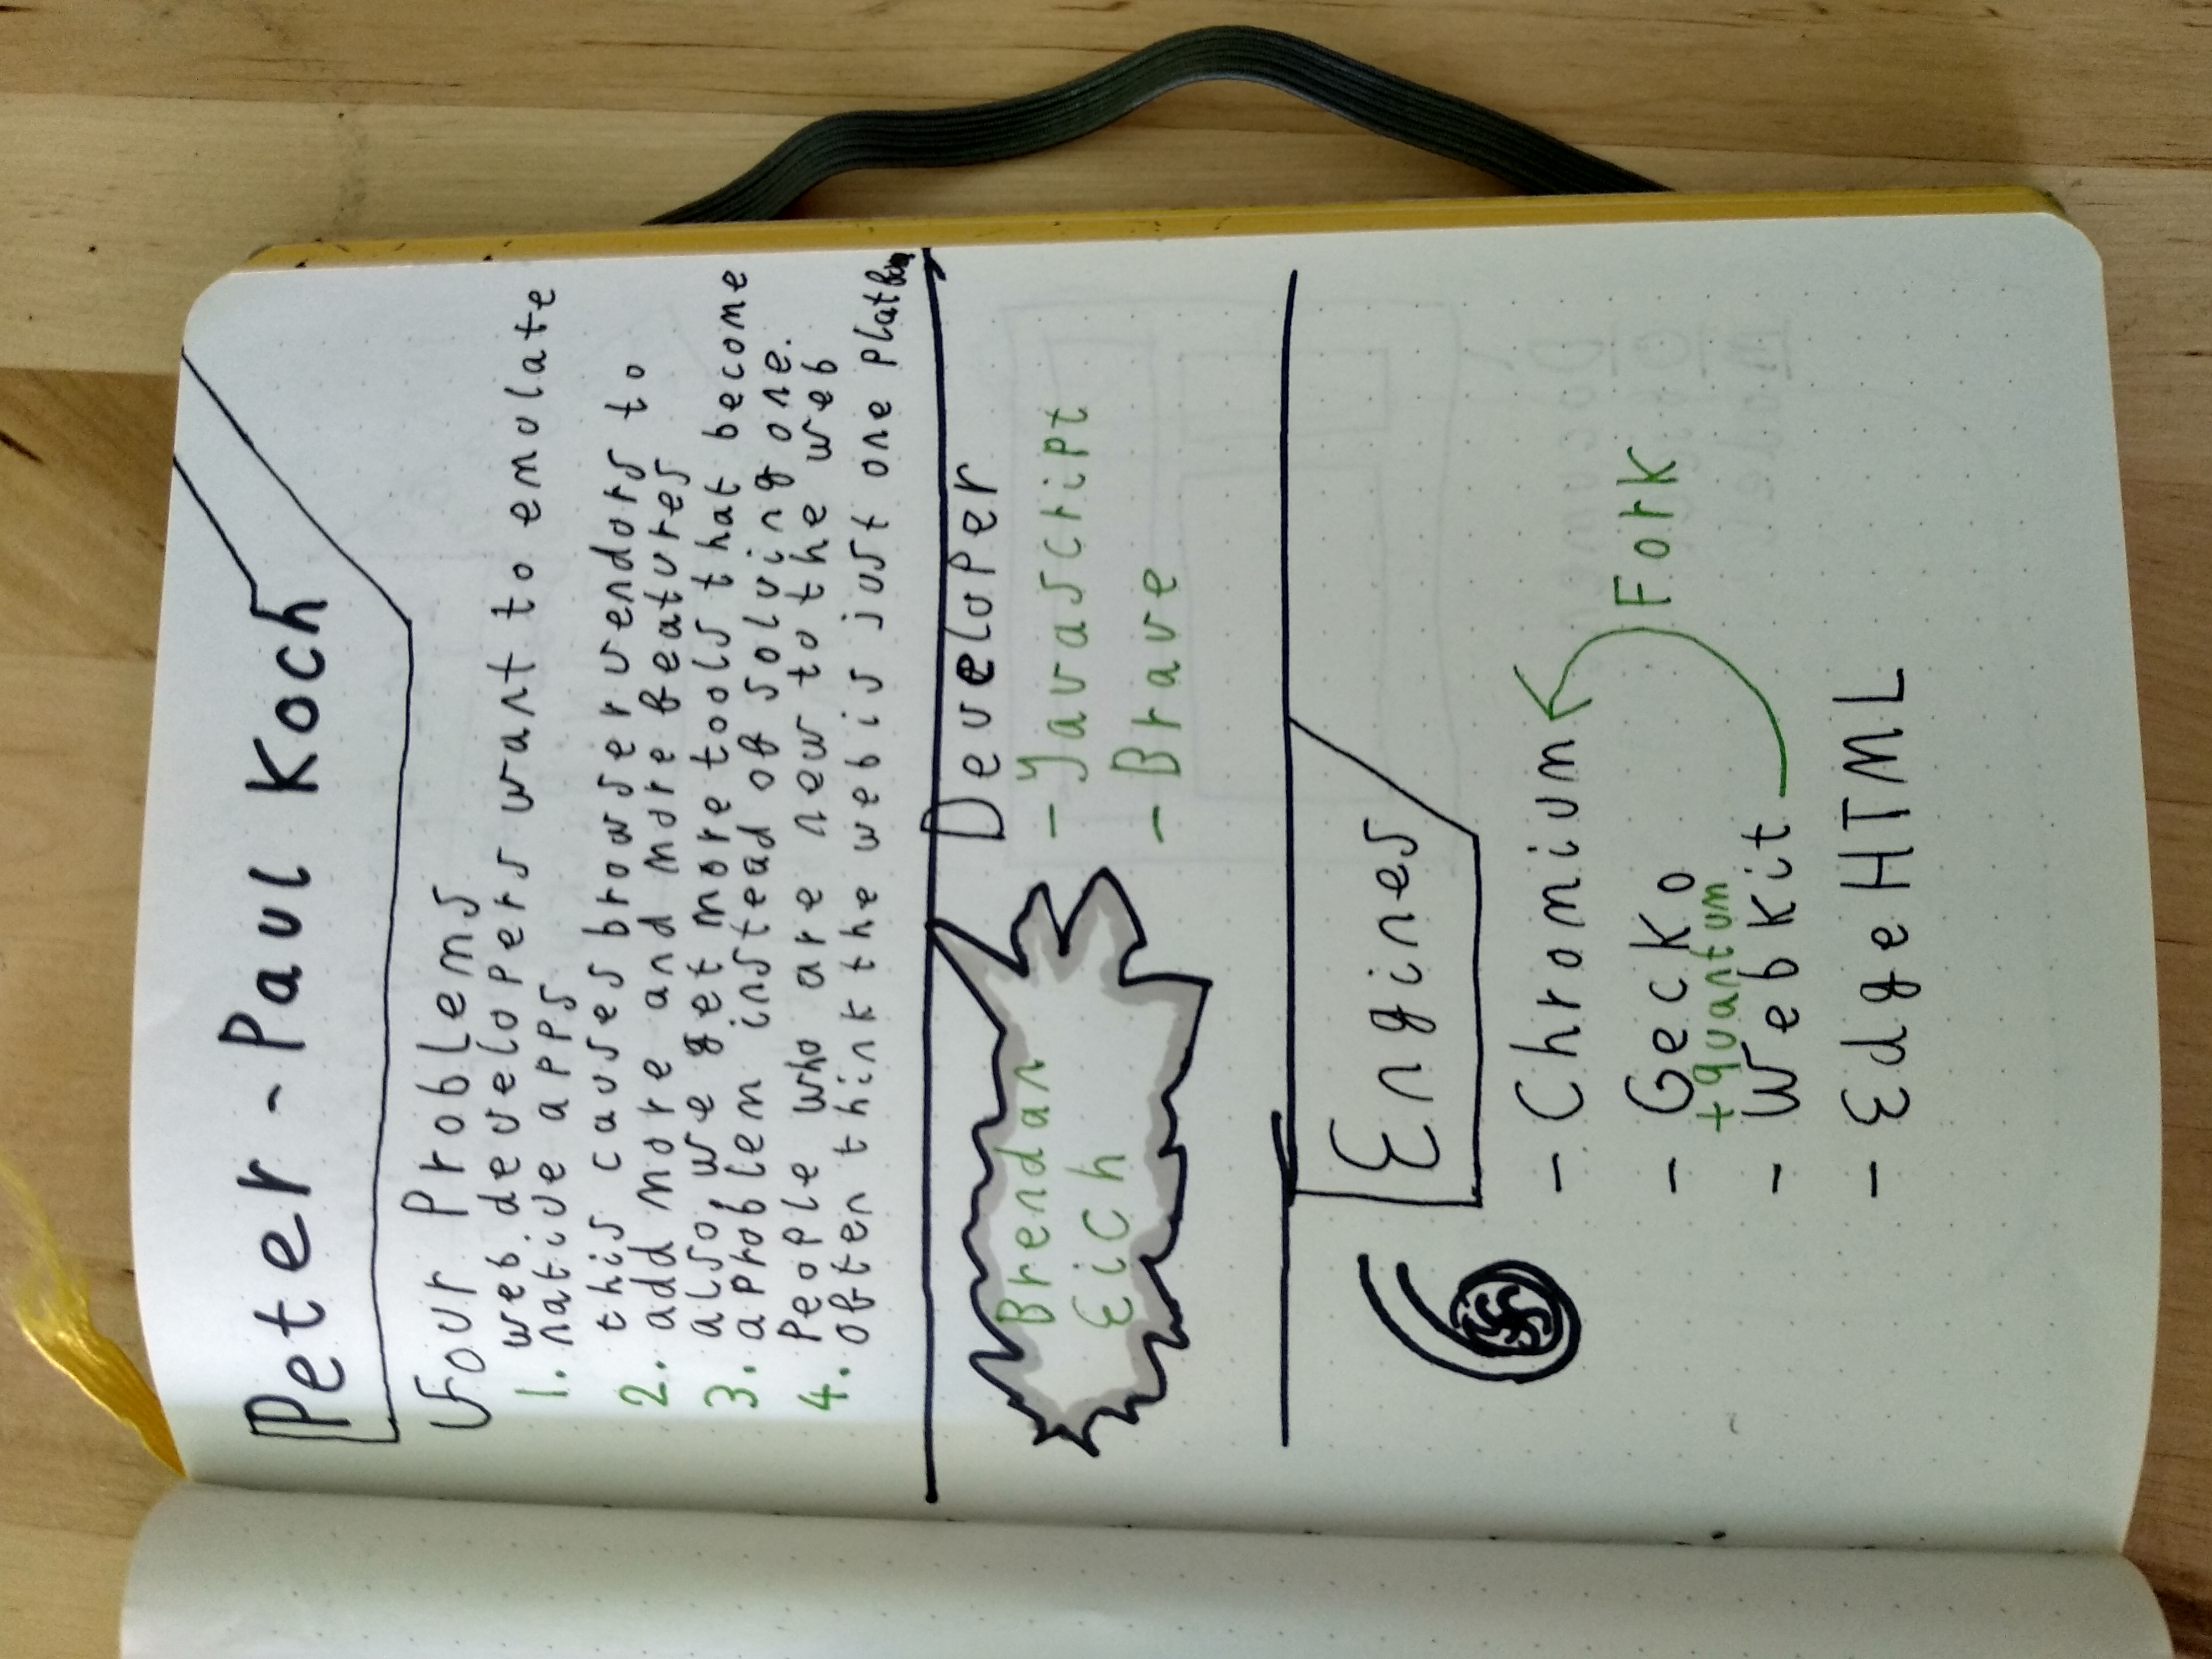 Peter-Paul Koch
Four Problems
1. web developers want to emulate
native apps
2. this causes browser vendors to
add more and more features
3. also, we get more tools that become
a problem instead of solving one.
4. People who are new to the web
often think the web is just one platform
Brendan
Eich
Developer
- Javascript
- Brave
Engines
- Chromium
- Gecko
+quantum
- Webkit
Fork
- EdgeHTML